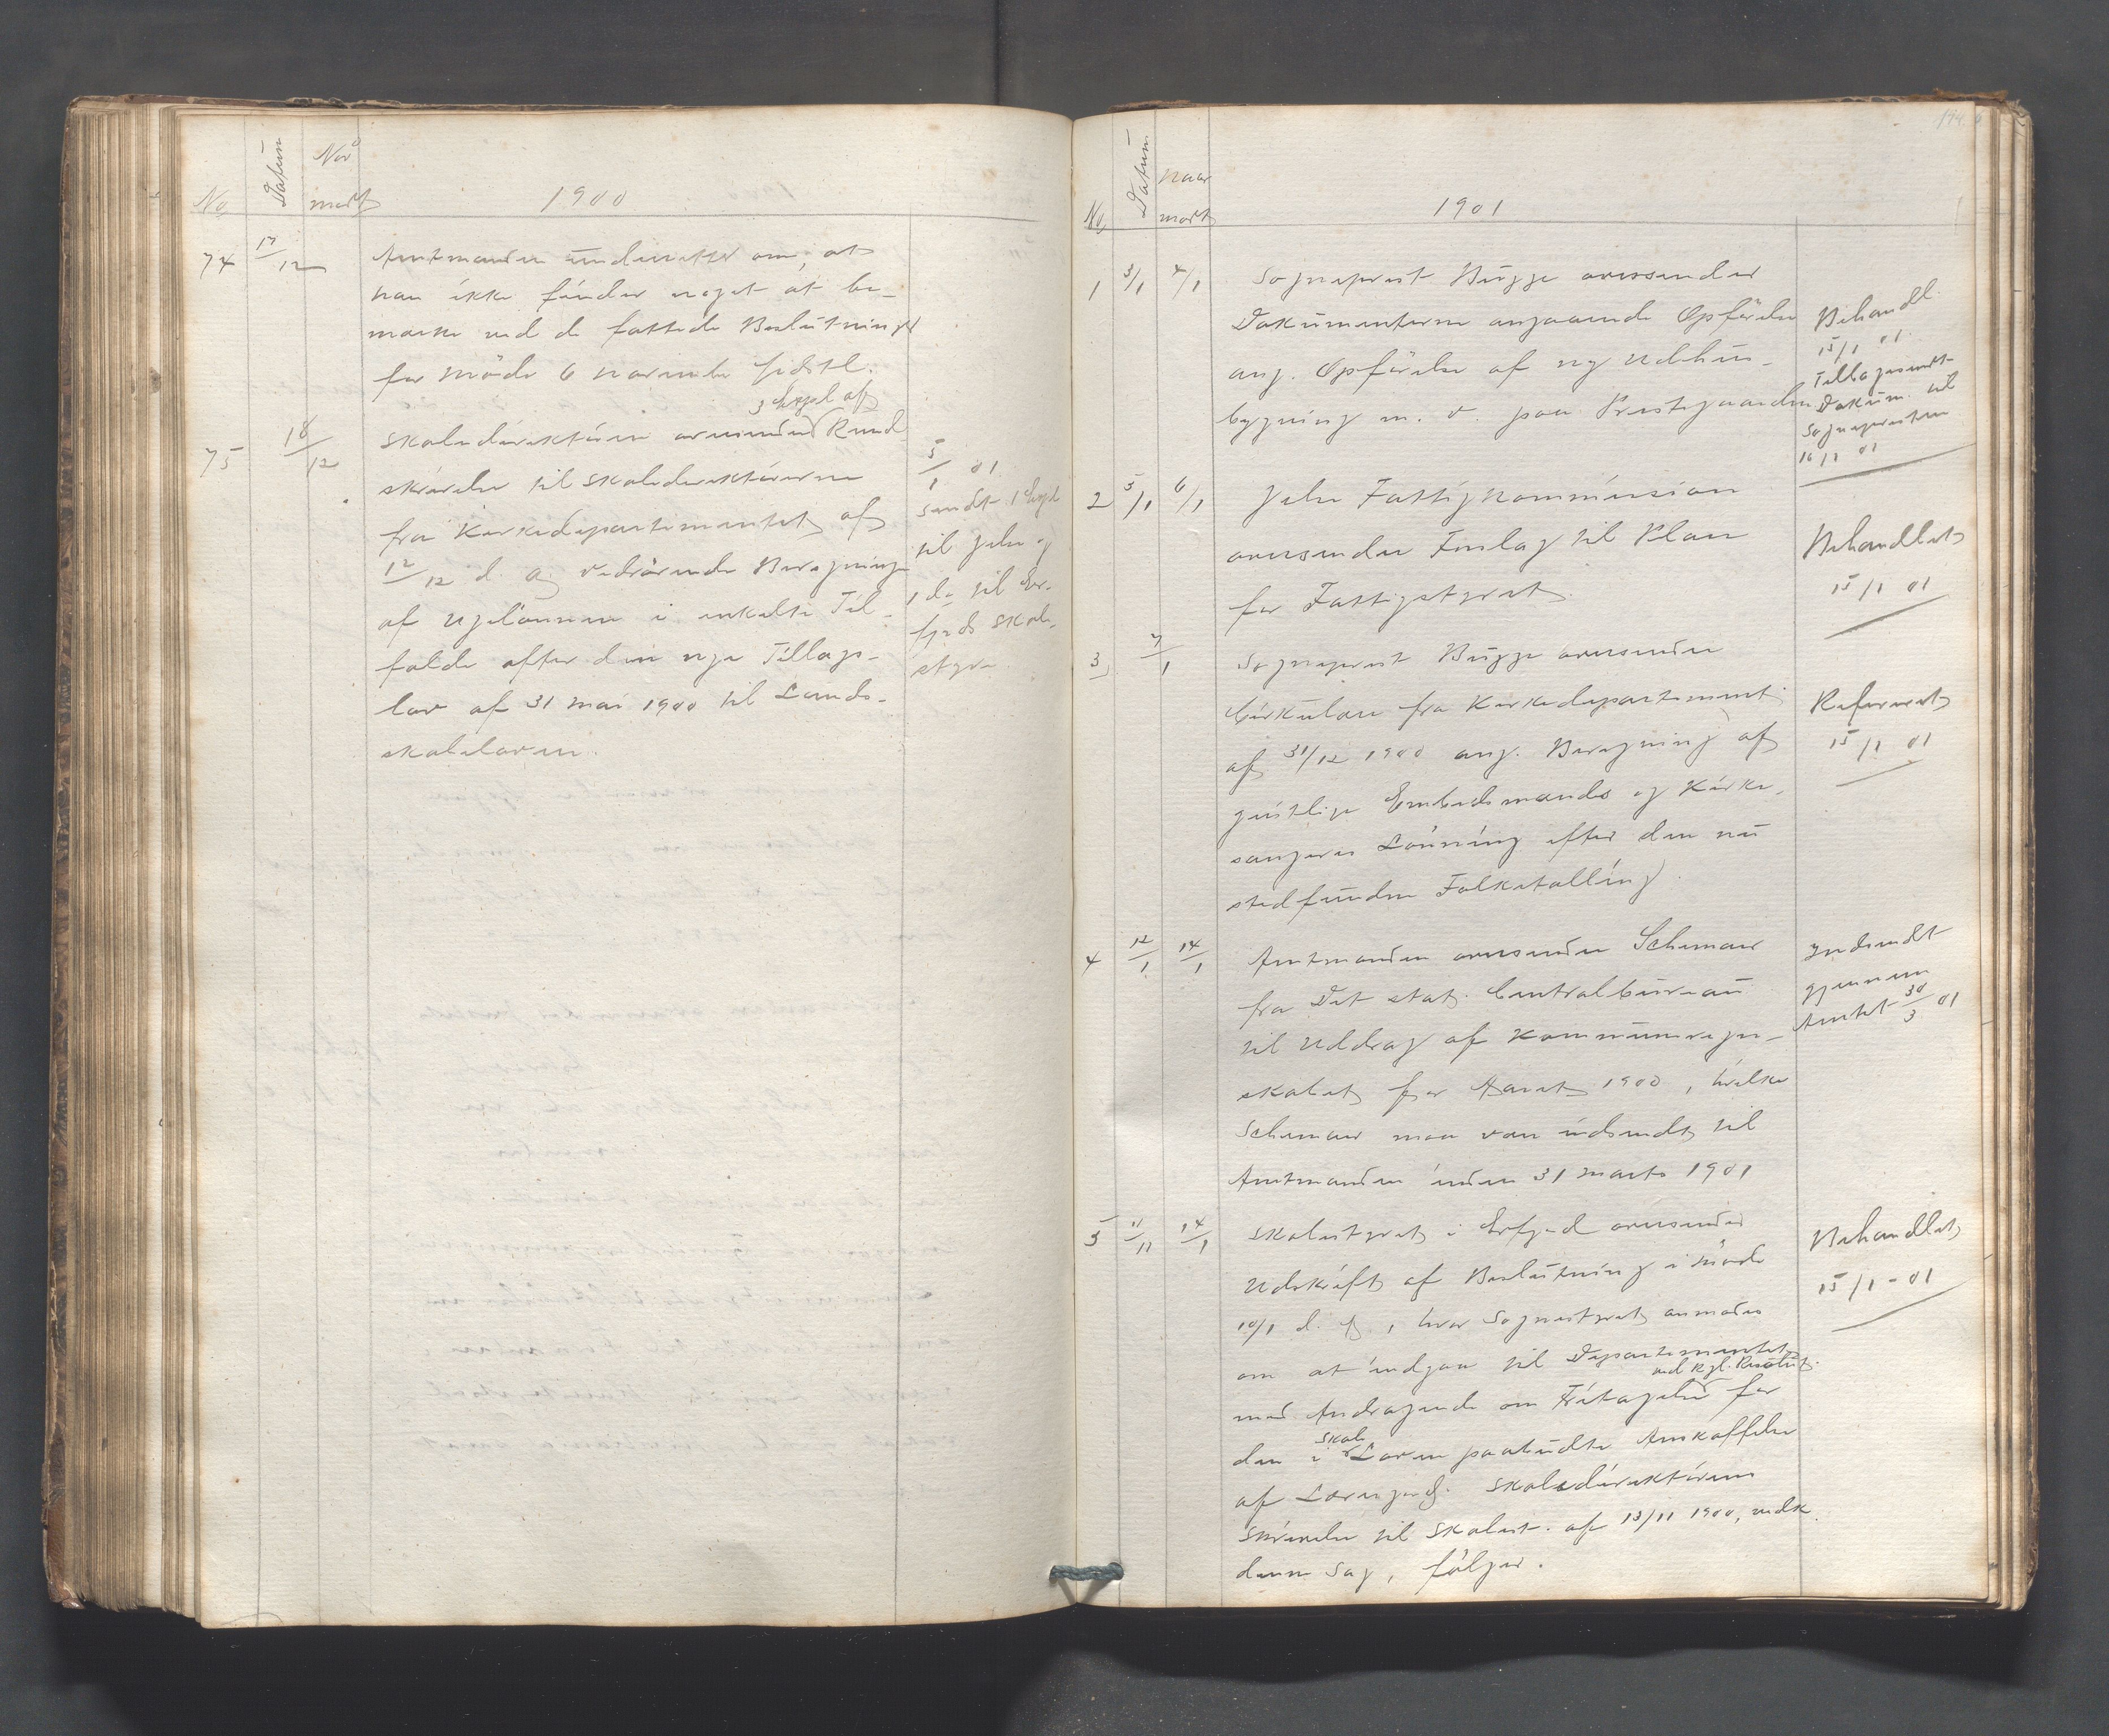 No
Datum
Naar
modt
1900
74 17/12
Amtmanden underretter om, at
han ikke finder noget at be-
mærke ved de fattede Beslutninger
for Møde 6 november sidstl.
75 18/12
3 Expl af
Skoledirektøren oversender Rund
skrivelse til Skoledirektørerne
fra Kirkedepartementet af
12/12 d. A. vedrørende Beregningen
af Ugelønnen i enkelte Til-
fælde efter den nye Tillægs-
lov af 31 mai 1900 til Lands-
skoleloven.
5/1 01
sendt 1 Expl
til Jelse og
1 do til Er-
fjords Skole-
styre.
No
Datum
Naar
modt
1901
1 3/1 4/1
Sogneprest Bugge oversender
Dokumenterne angaaende Opførelse
ang. Opførelse af ny Udhus-
bygning m. v. paa Prestegaarden
Behandl.
15/1 01.
Tilbagesendt
Dokum. til
Sognepresten
16/1 01
2 5/1 6/1
Jelse Fattigkommission
oversender Forslag til Plan
for Fattigstyret.
Behandlet
15/1 01
3 7/1
Sogneprest Bugge oversender
Cirkulære fra Kirkedepartement.
af 31/12 1900 ang. Beregning af
geistlige Embedsmænds og Kirke-
sangeres Lønning efter den nu
stedfundne Folketælling.
Refereret
15/1 01
4 12/1 14/1
Amtmanden oversender Schemaer
fra Det stat. Centralbureau
til Uddrag af Kommuneregn-
skabet for Aaret 1900, hvilke
Schemaer maa være indsendt til
Amtmanden inden 31 marts 1901
Indsendt
gjennem
Amtet 30/3 01
5 11/11 14/1
Skolestyret i Erfjord oversender
Udskrift af Beslutning i Møde
10/1 d. A., hvor Sognestyret anmodes
om at indgaa til Departementet
ved Kgl. Resolut.
med Andragende om Fritagelse for
Skole
den i Loven paabudte Anskaffelse
af Læregods. Skoledirektørens
Skrivelse til Skolest. af 13/11 1900, vedk.
denne Sag, følger.
Behandlet
15/1 - 01